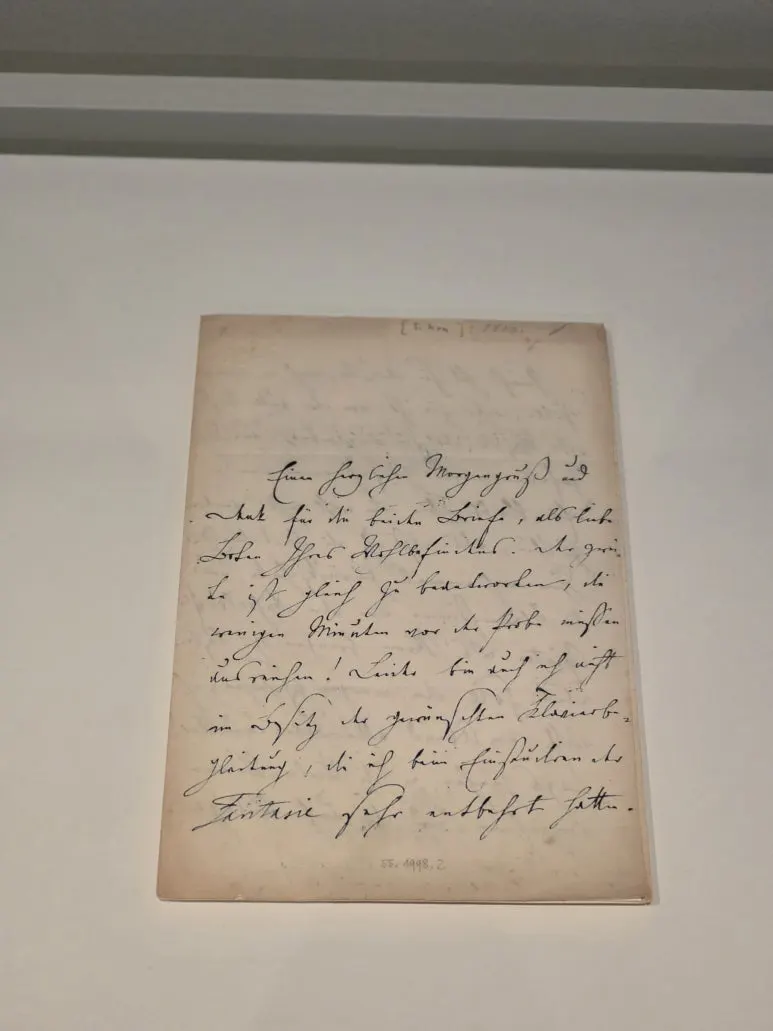 Einen herzlichen Morgengruß und
Dank für die beiden Briefe, als liebe
Boten Ihres Wohlbefindens. Der zwei-
te ist gleich zu beantworten, die
wenigen Minuten vor der Probe müssen
ausreichen! Leider bin auch ich nicht
im Besitz der gewünschten Klavierbe-
gleitung, die ich beim Einstudiren der
Fantasie sehr entbehrt hatte.
55.1998.2